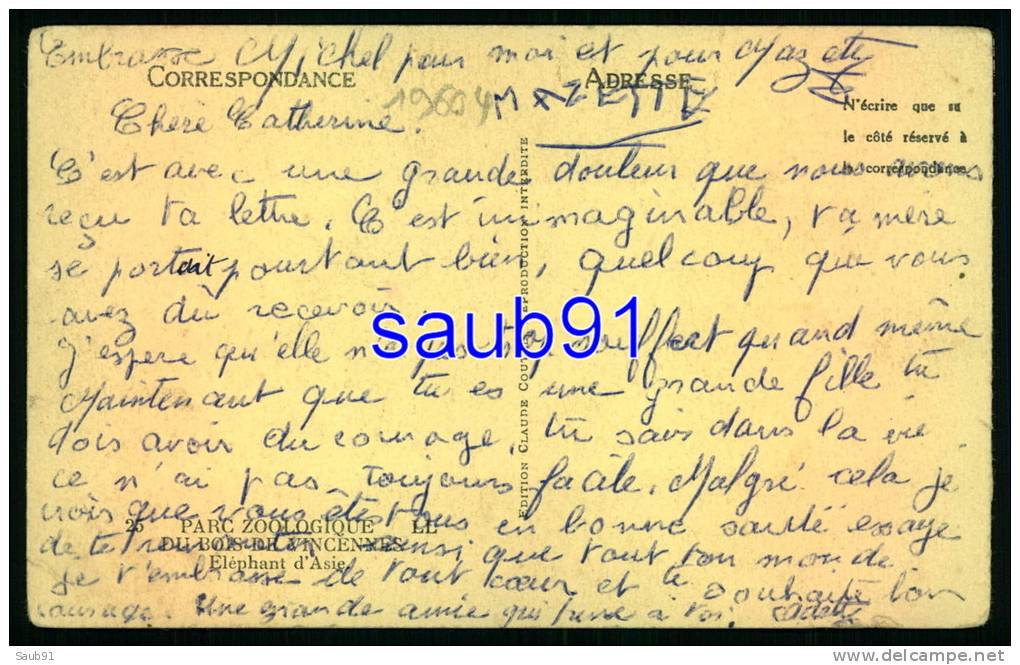 Embrasse Michel pour moi et pour Mazette
CORRESPONDANCE
ADRESSE
19604
MAZETTE
N'écrire que su
le côté réservé à
la correspondance
Chere Catherine.
C'est avec une grande douleur que nous avons
reçu ta lettre. C'est inimaginable, ta mere
se portait pourtant bien, quel coup que vous
avez dû recevoir
J'espere qu'elle n'a pas souffert quand même
Maintenant que tu es une grande fille tu
dois avoir du courage, tu sais dans la vie
ce n'ai pas toujours facile. Malgré cela je
vois que vous êtes tous en bonne santé essaye
de te ainsi que tout ton monde
Je t'embrasse de tout cœur et te souhaite bon
courage. Une grande amie qui pense à toi. Odette
25 PARC ZOOLOGIQUE
DU BOIS DE VINCENNES
Eléphant d'Asie
EDITION CLAUDE REPRODUCTION INTERDITE
saub91
Saub91
delcampe.net